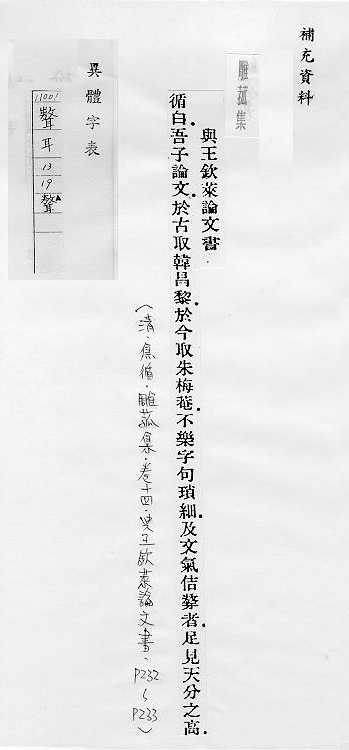 補充資料
雕菰集
與王欽萊論文書
循白吾子論文於古取韓昌黎於今取朱梅菴不樂字句瑣細及文氣佶聱者足見天分之高
(清.焦循.雕菰集.卷十四.與王欽萊論文書、P232~P233)
異體字表
11001
聱
耳
13
19